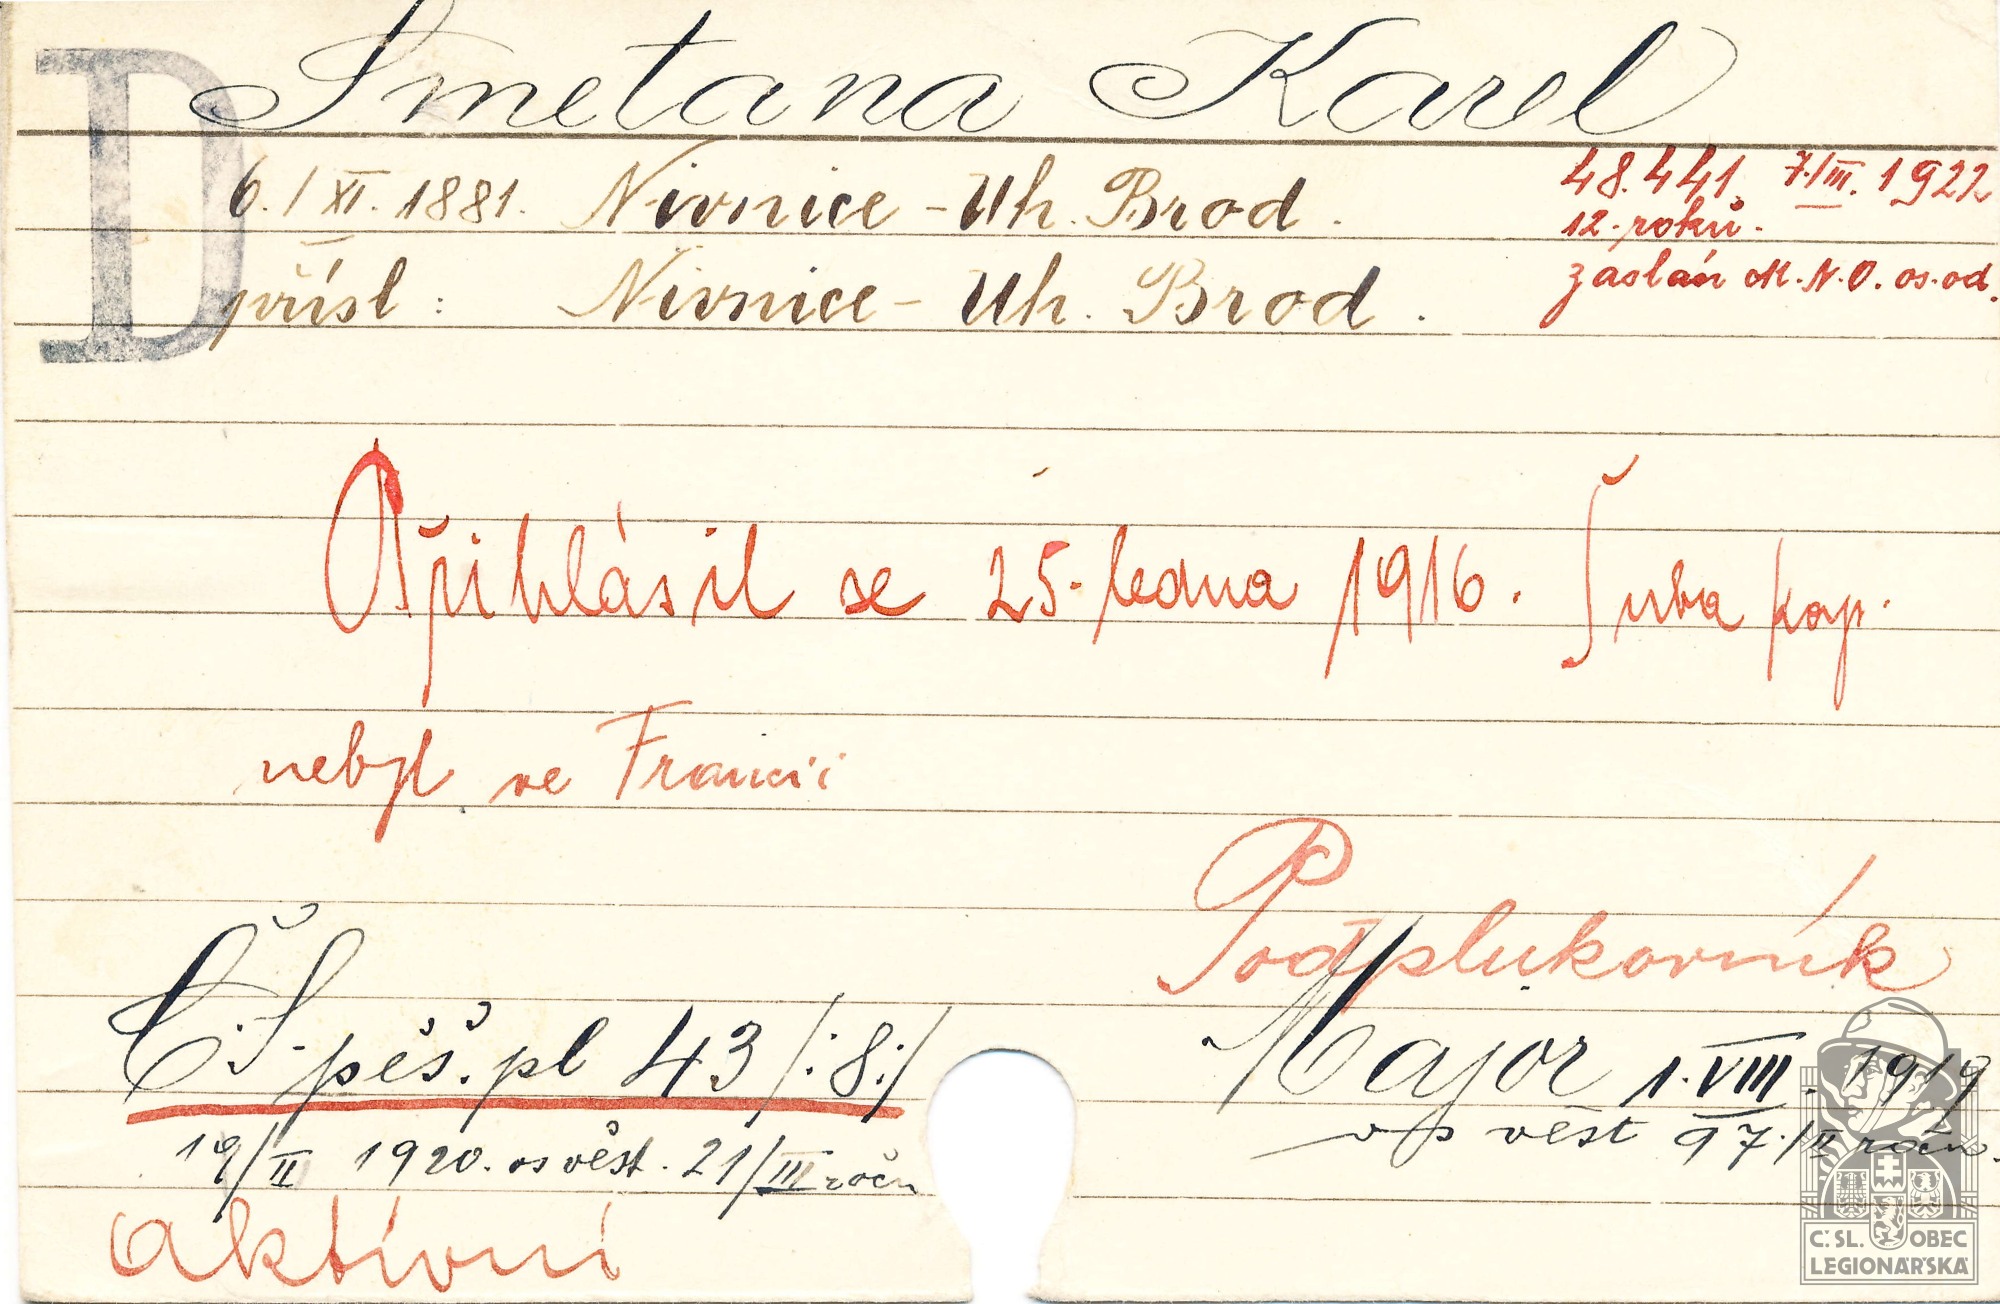 D
Smetana Karel
6./XI. 1881. Nivnice - Uh. Brod.
48.441. 7./III. 1922
12. roků.
přísl: Nivnice - Uh. Brod.
zaslán M.N.O. os. od.
Přihlásil se 25. ledna 1916. Šuba kap.
nebyl ve Francii
Podplukovník
Č.S. pěš. pl 43 /:8:/
Major 1. VIII. 1919
19/II 1920. os věst. 21/III ročn
věst 97./II ročn.
aktivní
Č.SL. OBEC
LEGIONÁŘSKÁ